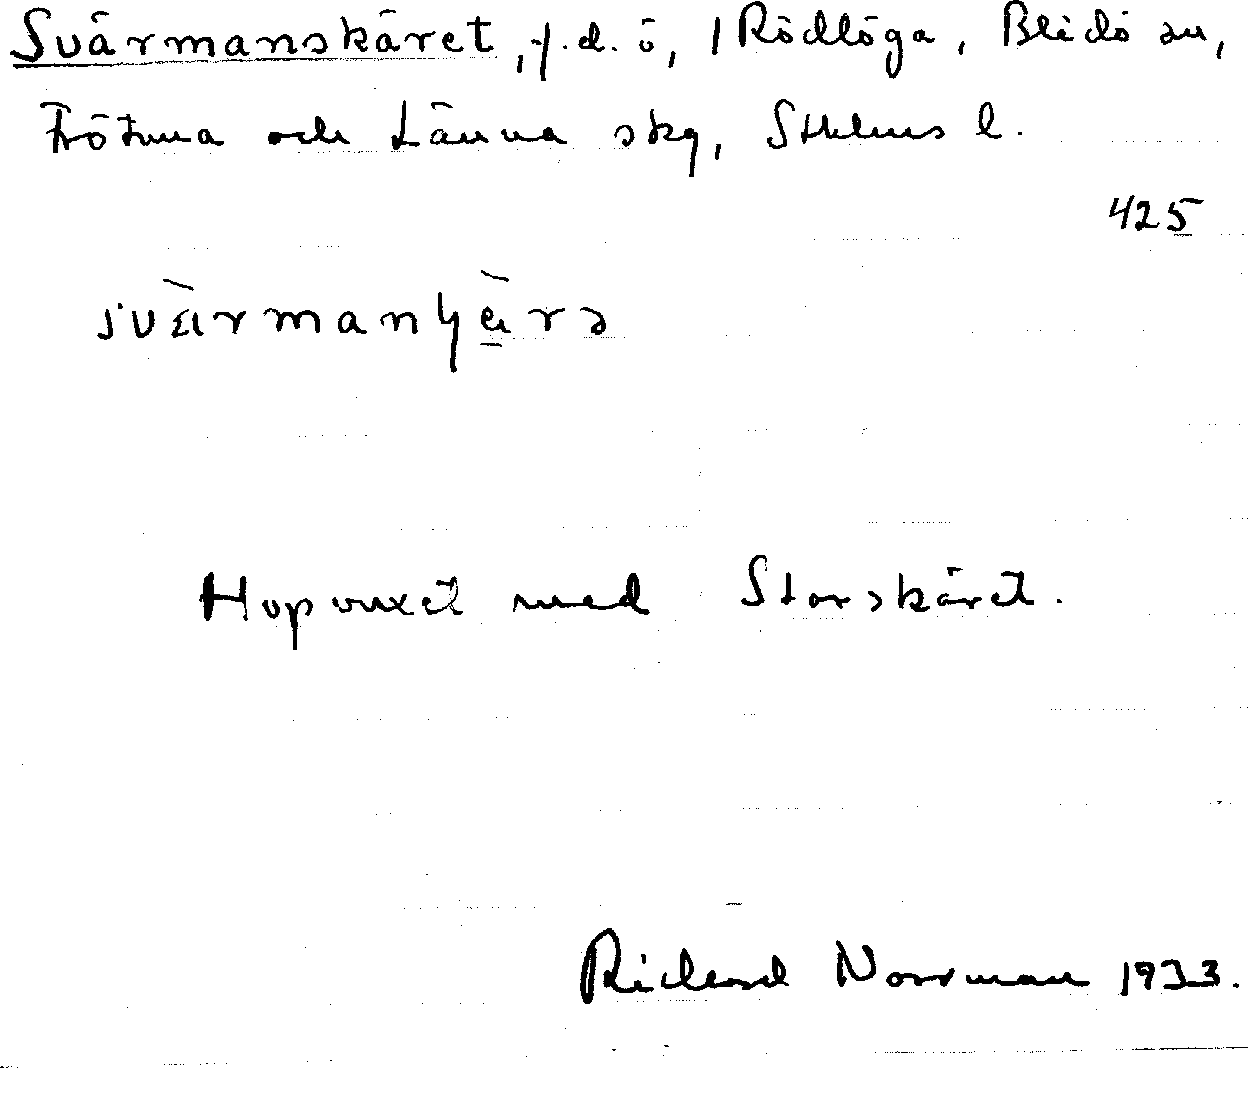 Svärmanskäret, f.d. ö, 1 Rödlöga, Blidö sn,
Frötuna och Länna skg, Sthlms l.
425
svä̀rmanʃä̀rə
Hopvuxet med Storskäret.
Richard Norrman 1933.